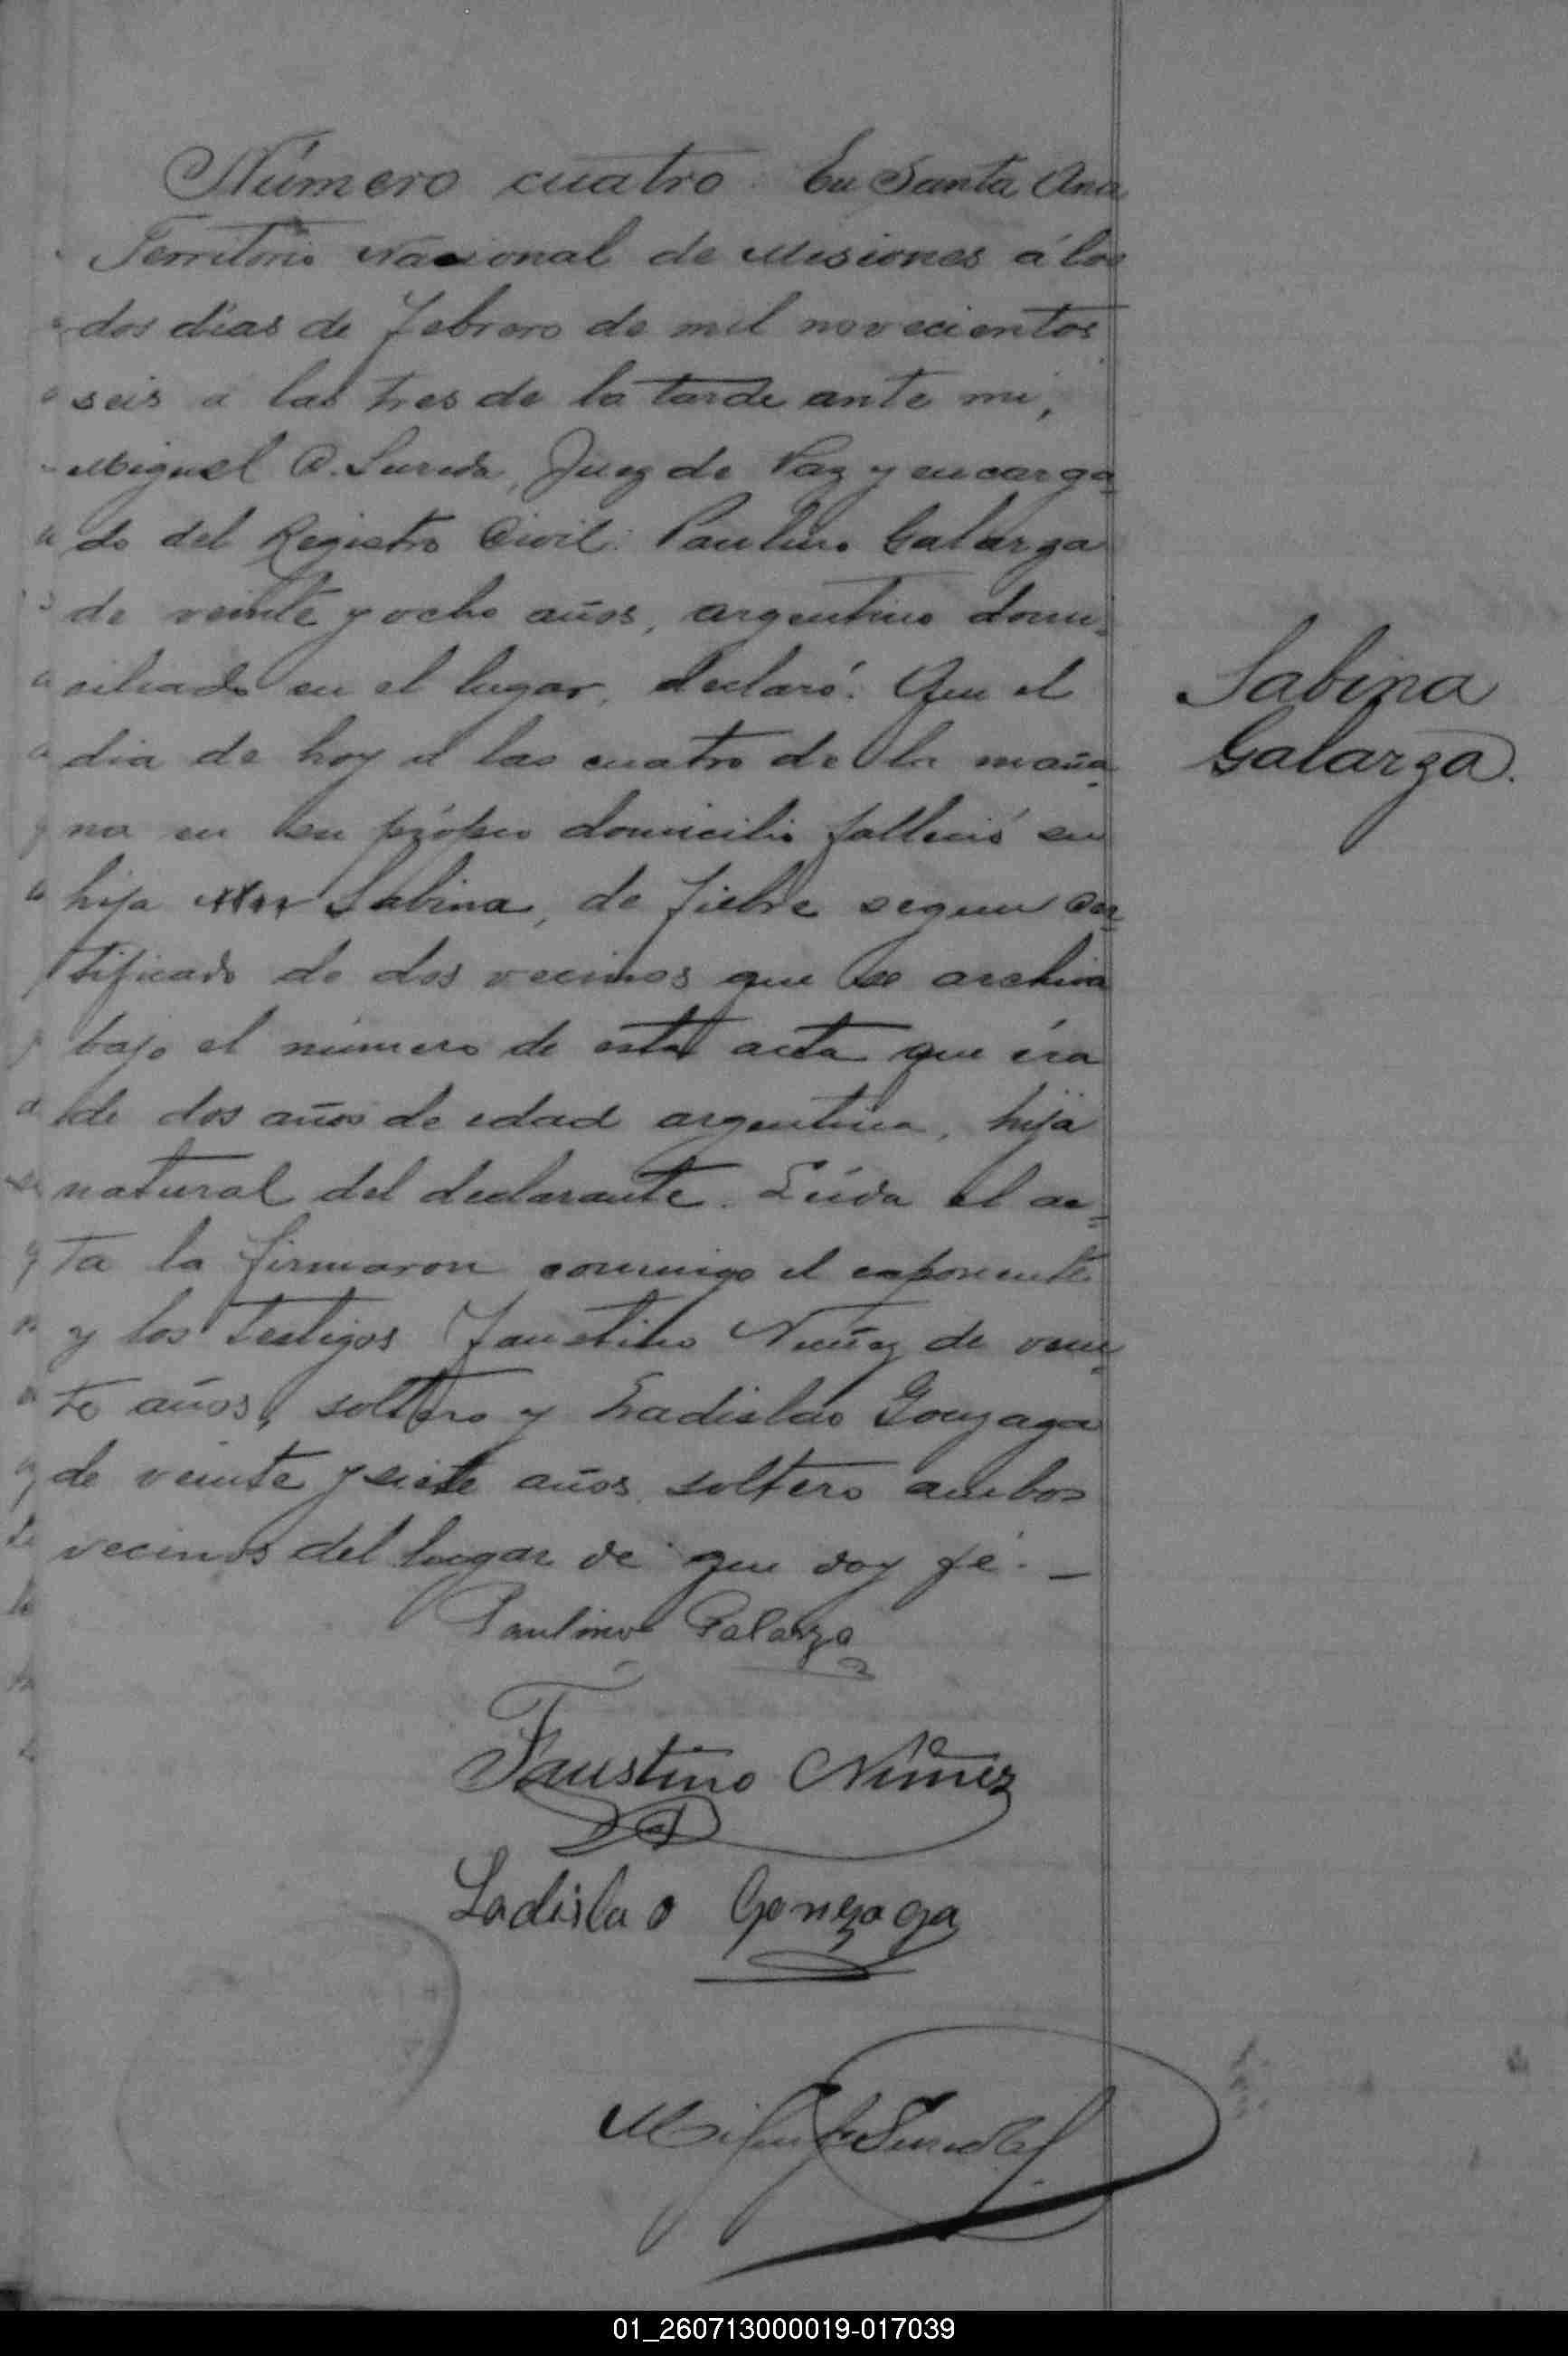 Número cuatro En Santa Ana
Territorio Nacional de Misiones á los
dos dias de Febrero de mil novecientos
seis a las tres de la tarde ante mi,
Miguel C. Sureda, Juez de Paz y encarga
do del Registro Civil: Paulino Galarza
de veinte y ocho años, argentino domi-
ciliado en el lugar, declaró: Que el
dia de hoy á las cuatro de la maña
na en su própio domicilio falleció su
hija Sabina, de fiebre segun cer
tificado de dos vecinos que se archiva
bajo el número de esta acta que éra
de dos años de edad argentina, hija
natural del declarante. Leida el ac-
ta la firmaron conmigo el exponente
y los testigos Faustino Nuñez de vein
te años, soltero y Ladislao Gonzaga
de veinte y siete años soltero ambos
vecinos del lugar de que doy fé. —
Sabina
Galarza.
Paulino Galarza
Faustino Núñez
Ladislao Gonzaga
Miguel C. Sureda
01_260713000019-017039